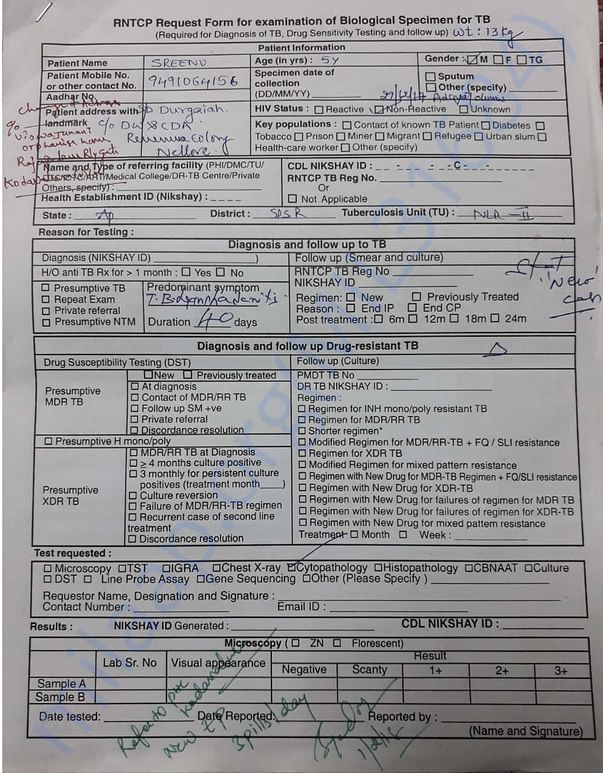 RNTCP Request Form for examination of Biological Specimen for TB
(Required for Diagnosis of TB, Drug Sensitivity Testing and follow up) Wt: 13 kg
Patient Information
Patient Name SREENU Age (in yrs) : 5y Gender : M F TG
Patient Mobile No. or other contact No. 9491064156
Specimen date of collection (DD/MM/YY)
Sputum
Other (specify)
Aadhar No.
HIV Status : Reactive Non-Reactive Unknown
Patient address with landmark S/o Durgaiah.
Colony
Nellore
Key populations : Contact of known TB Patient Diabetes
Tobacco Prison Miner Migrant Refugee Urban slum
Health-care worker Other (specify)
Name and Type of referring facility (PHI/DMC/TU/
/ART/Medical College/DR-TB Centre/Private
Others, specify) :
Health Establishment ID (Nikshay) :
CDL NIKSHAY ID : - C -
RNTCP TB Reg No.
Or
Not Applicable
State : AP District : SPSR Tuberculosis Unit (TU) : NLR - II
Reason for Testing :
Diagnosis and follow up to TB
Diagnosis (NIKSHAY ID) Follow up (Smear and culture)
H/O anti TB Rx for > 1 month : Yes No
RNTCP TB Reg No
NIKSHAY ID
Presumptive TB
Repeat Exam
Private referral
Presumptive NTM
Predominant symptom
Duration 40 days
Regimen: New Previously Treated
Reason : End IP End CP
Post treatment : 6m 12m 18m 24m
New
case
Diagnosis and follow up Drug-resistant TB
Drug Susceptibility Testing (DST) Follow up (Culture)
Presumptive MDR TB
New Previously treated
At diagnosis
Contact of MDR/RR TB
Follow up SM +ve
Private referral
Discordance resolution
Presumptive H mono/poly
Presumptive XDR TB
MDR/RR TB at Diagnosis
≥ 4 months culture positive
3 monthly for persistent culture positives (treatment month____)
Culture reversion
Failure of MDR/RR-TB regimen
Recurrent case of second line treatment
Discordance resolution
PMDT TB No
DR TB NIKSHAY ID :
Regimen :
Regimen for INH mono/poly resistant TB
Regimen for MDR/RR TB
Shorter regimen*
Modified Regimen for MDR/RR-TB + FQ / SLI resistance
Regimen for XDR TB
Modified Regimen for mixed pattern resistance
Regimen with New Drug for MDR-TB Regimen + FQ/SLI resistance
Regimen with New Drug for XDR-TB
Regimen with New Drug for failures of regimen for MDR TB
Regimen with New Drug for failures of regimen for XDR-TB
Regimen with New Drug for mixed pattern resistance
Treatment Month Week :
Test requested :
Microscopy TST IGRA Chest X-ray Cytopathology Histopathology CBNAAT Culture
DST Line Probe Assay Gene Sequencing Other (Please Specify )
Requestor Name, Designation and Signature :
Contact Number : Email ID :
Results : NIKSHAY ID Generated : CDL NIKSHAY ID :
Microscopy ( ZN Florescent)
Lab Sr. No Visual appearance Result
Negative Scanty 1+ 2+ 3+
Sample A
Sample B
Date tested: Date Reported: Reported by :
(Name and Signature)
Refer to PHC
3 pills/day